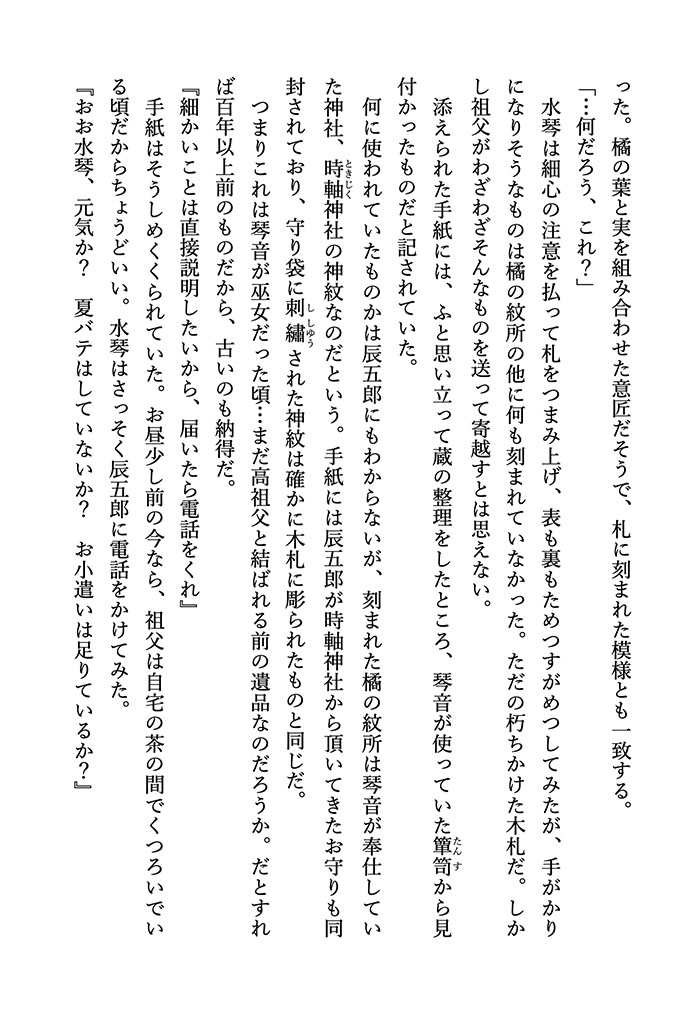 った。橘の葉と実を組み合わせた意匠だそうで、札に刻まれた模様とも一致する。
「…何だろう、これ？」
　水琴は細心の注意を払って札をつまみ上げ、表も裏もためつすがめつしてみたが、手がかり
になりそうなものは橘の紋所の他に何も刻まれていなかった。ただの朽ちかけた木札だ。しか
し祖父がわざわざそんなものを送って寄越すとは思えない。
　添えられた手紙には、ふと思い立って蔵の整理をしたところ、琴音が使っていた簞笥から見
付かったものだと記されていた。
　何に使われていたものかは辰五郎にもわからないが、刻まれた橘の紋所は琴音が奉仕してい
た神社、時軸神社の神紋なのだという。手紙には辰五郎が時軸神社から頂いてきたお守りも同
封されており、守り袋に刺繡された神紋は確かに木札に彫られたものと同じだ。
　つまりこれは琴音が巫女だった頃…まだ高祖父と結ばれる前の遺品なのだろうか。だとすれ
ば百年以上前のものだから、古いのも納得だ。
『細かいことは直接説明したいから、届いたら電話をくれ』
　手紙はそうしめくくられていた。お昼少し前の今なら、祖父は自宅の茶の間でくつろいでい
る頃だからちょうどいい。水琴はさっそく辰五郎に電話をかけてみた。
『おお水琴、元気か？　夏バテはしていないか？　お小遣いは足りているか？』